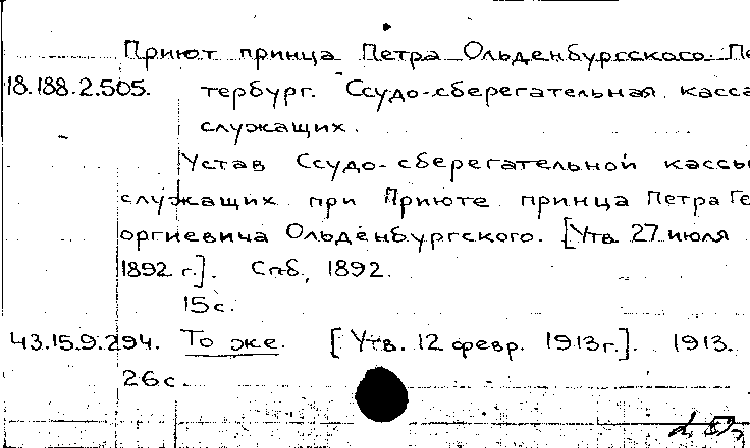 Приют принца Петра Ольденбургского. Пе
18.188.2.505. тербург. Ссудо-сберегательная касса
служащих.
Устав Ссудо-сберегательной кассы
служащих при Приюте принца Петра Ге
оргиевича Ольденбургского. [Утв. 27 июля
1892 г.]. Спб, 1892.
15 с.
43.15.9.294. То же. [Утв. 12 февр. 1913 г.]. 1913.
26 с.